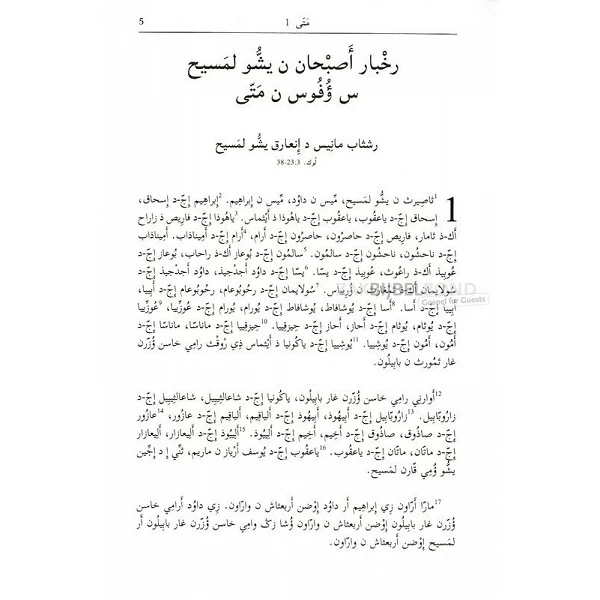 5 مَتّى 1
رخْبار أَصبْحان ن يشُّو لمَسيح
س ؤُفُوس ن مَتّى
رشثاب مانِيس د إِنعارق يشُّو لمَسيح
لُوك. 3:23-38
1 ¹ثاصِيرث ن يشُّو لمَسيح، مِّيس ن داوُد، مِّيس ن إبراهيم. ²إبراهيم إجّ-د إسحاق،
إسحاق إجّ-د ياعقوب، ياعقوب إجّ-د ياهُوذا ذ أَيثماس. ³ياهُوذا إجّ-د فارِيص ذ زاراح
أك-ذ ثامار، فارِيص إجّ-د حاصرُون، حاصرُون إجّ-د أرام، ⁴أرام إجّ-د أميناذاب. أميناذاب
إجّ-د ناحشُون، ناحشُون إجّ-د سالمُون. ⁵سالمُون إجّ-د بُوعاز أك-ذ راحاب، بُوعاز إجّ-د
عُوبيذ أك-ذ راعُوث، عُوبيذ إجّ-د يسّا. ⁶يسّا إجّ-د داوُد أجدجيذ، داوُد أجدجيذ إجّ-د
سُولايمان ن أُورِيّاس. ⁷سُولايمان إجّ-د رحُوبُوعام، رحُوبُوعام إجّ-د أبييا،
أبييا إجّ-د أسا. ⁸أسا إجّ-د يُوشافاط، يُوشافاط إجّ-د يُورام، يُورام إجّ-د عُوزّييا، ⁹عُوزّييا
إجّ-د يُوثام، يُوثام إجّ-د أحاز، أحاز إجّ-د حيزقييا. ¹⁰حيزقييا إجّ-د ماناسّا، ماناسّا إجّ-د
أمُون، أمُون إجّ-د يُوشييا. ¹¹يُوشييا إجّ-د ياكُونيا ذ أَيثماس ذي رُوقث رامي خاسن ؤُزّرن
غار ثمُورث ن بابيلُون.
¹²أوارني رامي خاسن ؤُزّرن غار بابيلُون، ياكُونيا إجّ-د شاعالثييل، شاعالثييل إجّ-د
زارُوبّابيل. ¹³زارُوبّابيل إجّ-د أبيهُوذ، أبيهُوذ إجّ-د ألياقيم، ألياقيم إجّ-د عازُور، ¹⁴عازُور
إجّ-د صاذُوق، صاذُوق إجّ-د أخيم، أخيم إجّ-د ألييُوذ. ¹⁵ألييُوذ إجّ-د أليعازار، أليعازار
إجّ-د ماتّان، ماتّان إجّ-د ياعقوب. ¹⁶ياعقوب إجّ-د يُوسف أرياز ن ماريم، ثنّي إ د إجّين
يشُّو ؤُمي قارن لمَسيح.
¹⁷مارّا أرّاون زي إبراهيم أر داوُد إوْضن أربعثاش ن وارّاون. زي داوُد أرامي خاسن
ؤُزّرن غار بابيلُون إوْضن أربعثاش ن وارّاون ؤُشا زڭ وامي خاسن ؤُزّرن غار بابيلُون أر
لمَسيح إوْضن أربعثاش ن وارّاون.
BIJBEL
Gospel for Guests